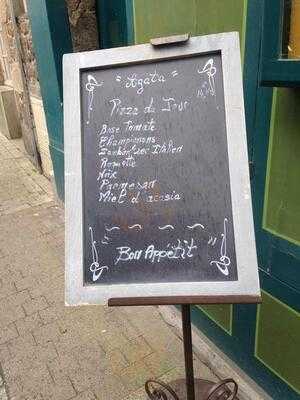 "Agata"
Pizza du Jour
14,50
Base Tomate
Champignons
Jambon Sec Italien
Roquette
Noix
Parmesan
Miel d'acasia
Bon Appétit